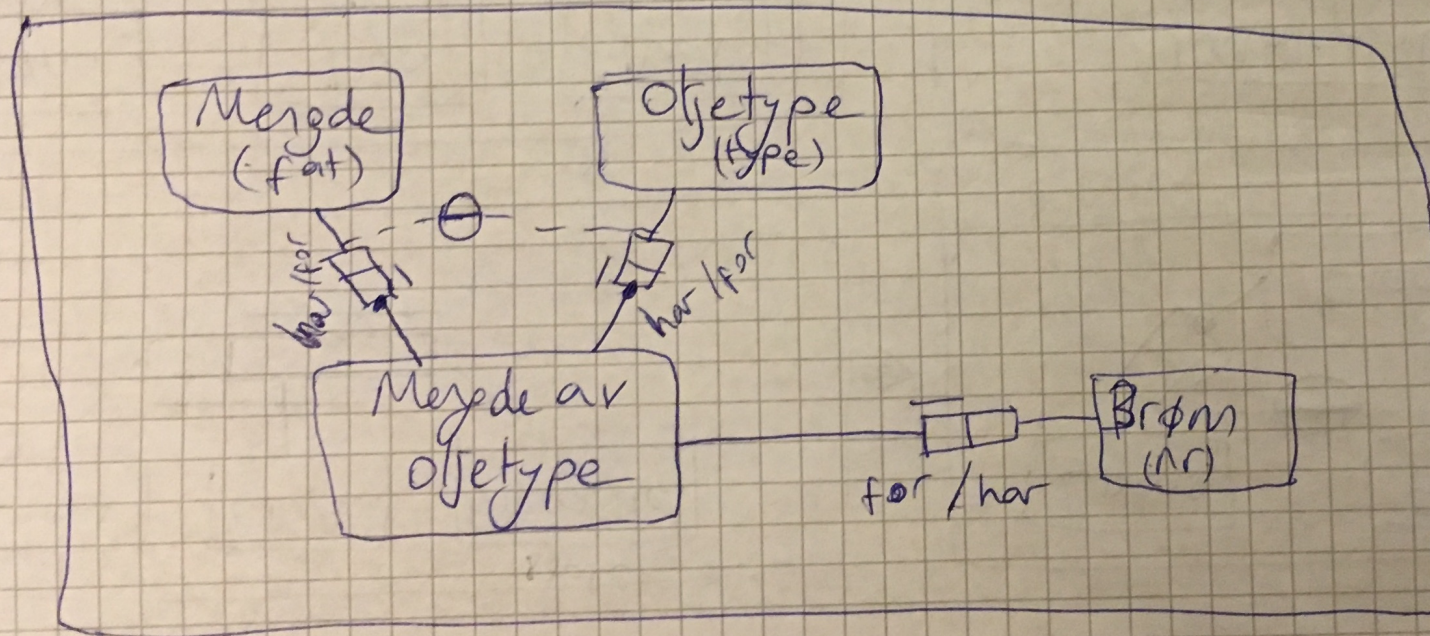 Mengde
(-fat)
Oljetype
(type)
har/for
har/for
Mengde av
oljetype
Brønn
(nr)
for/har